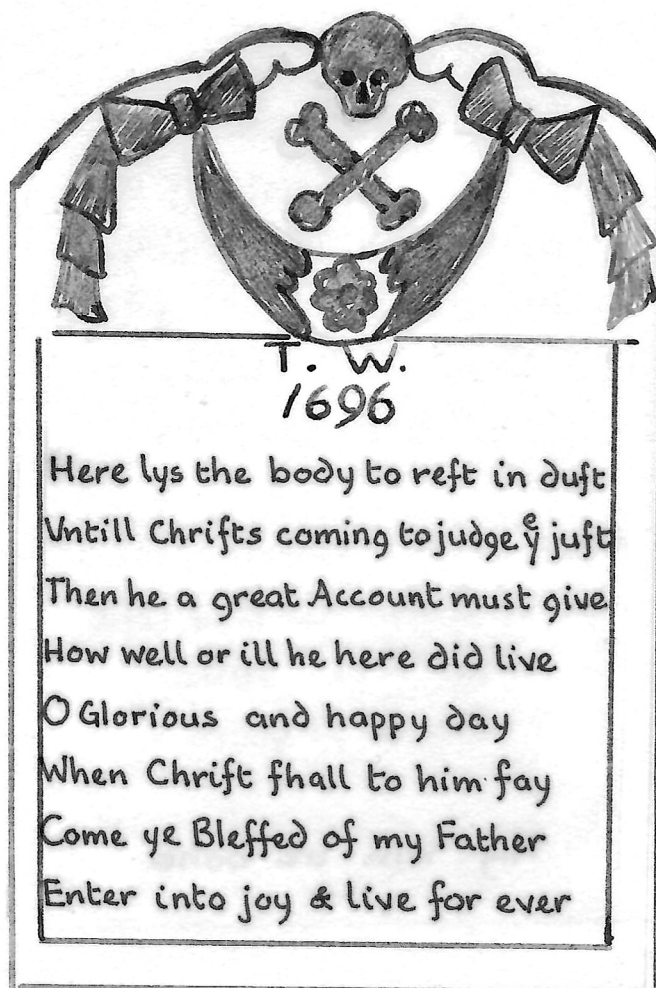 T. W.
1696
Here lys the body to reft in duft
Vntill Chrifts coming to judge yᵉ juft
Then he a great Account must give
How well or ill he here did live
O Glorious and happy day
When Chrift fhall to him fay
Come ye Bleffed of my Father
Enter into joy & live for ever